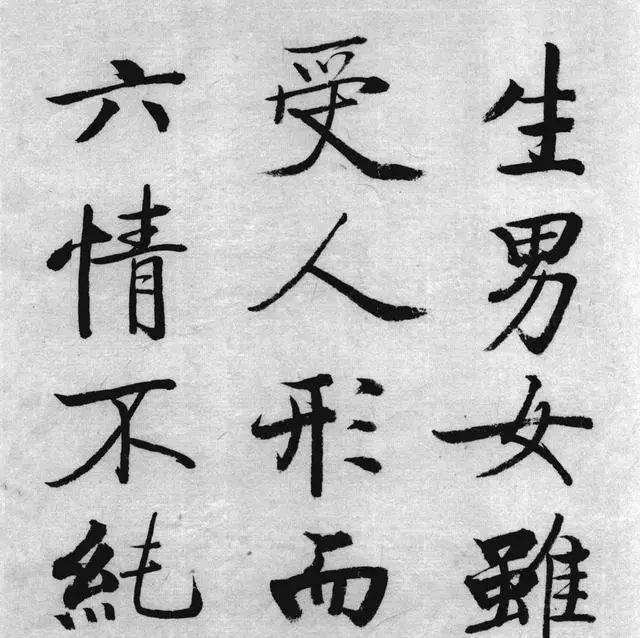 生男女雖
受人形而
六情不純